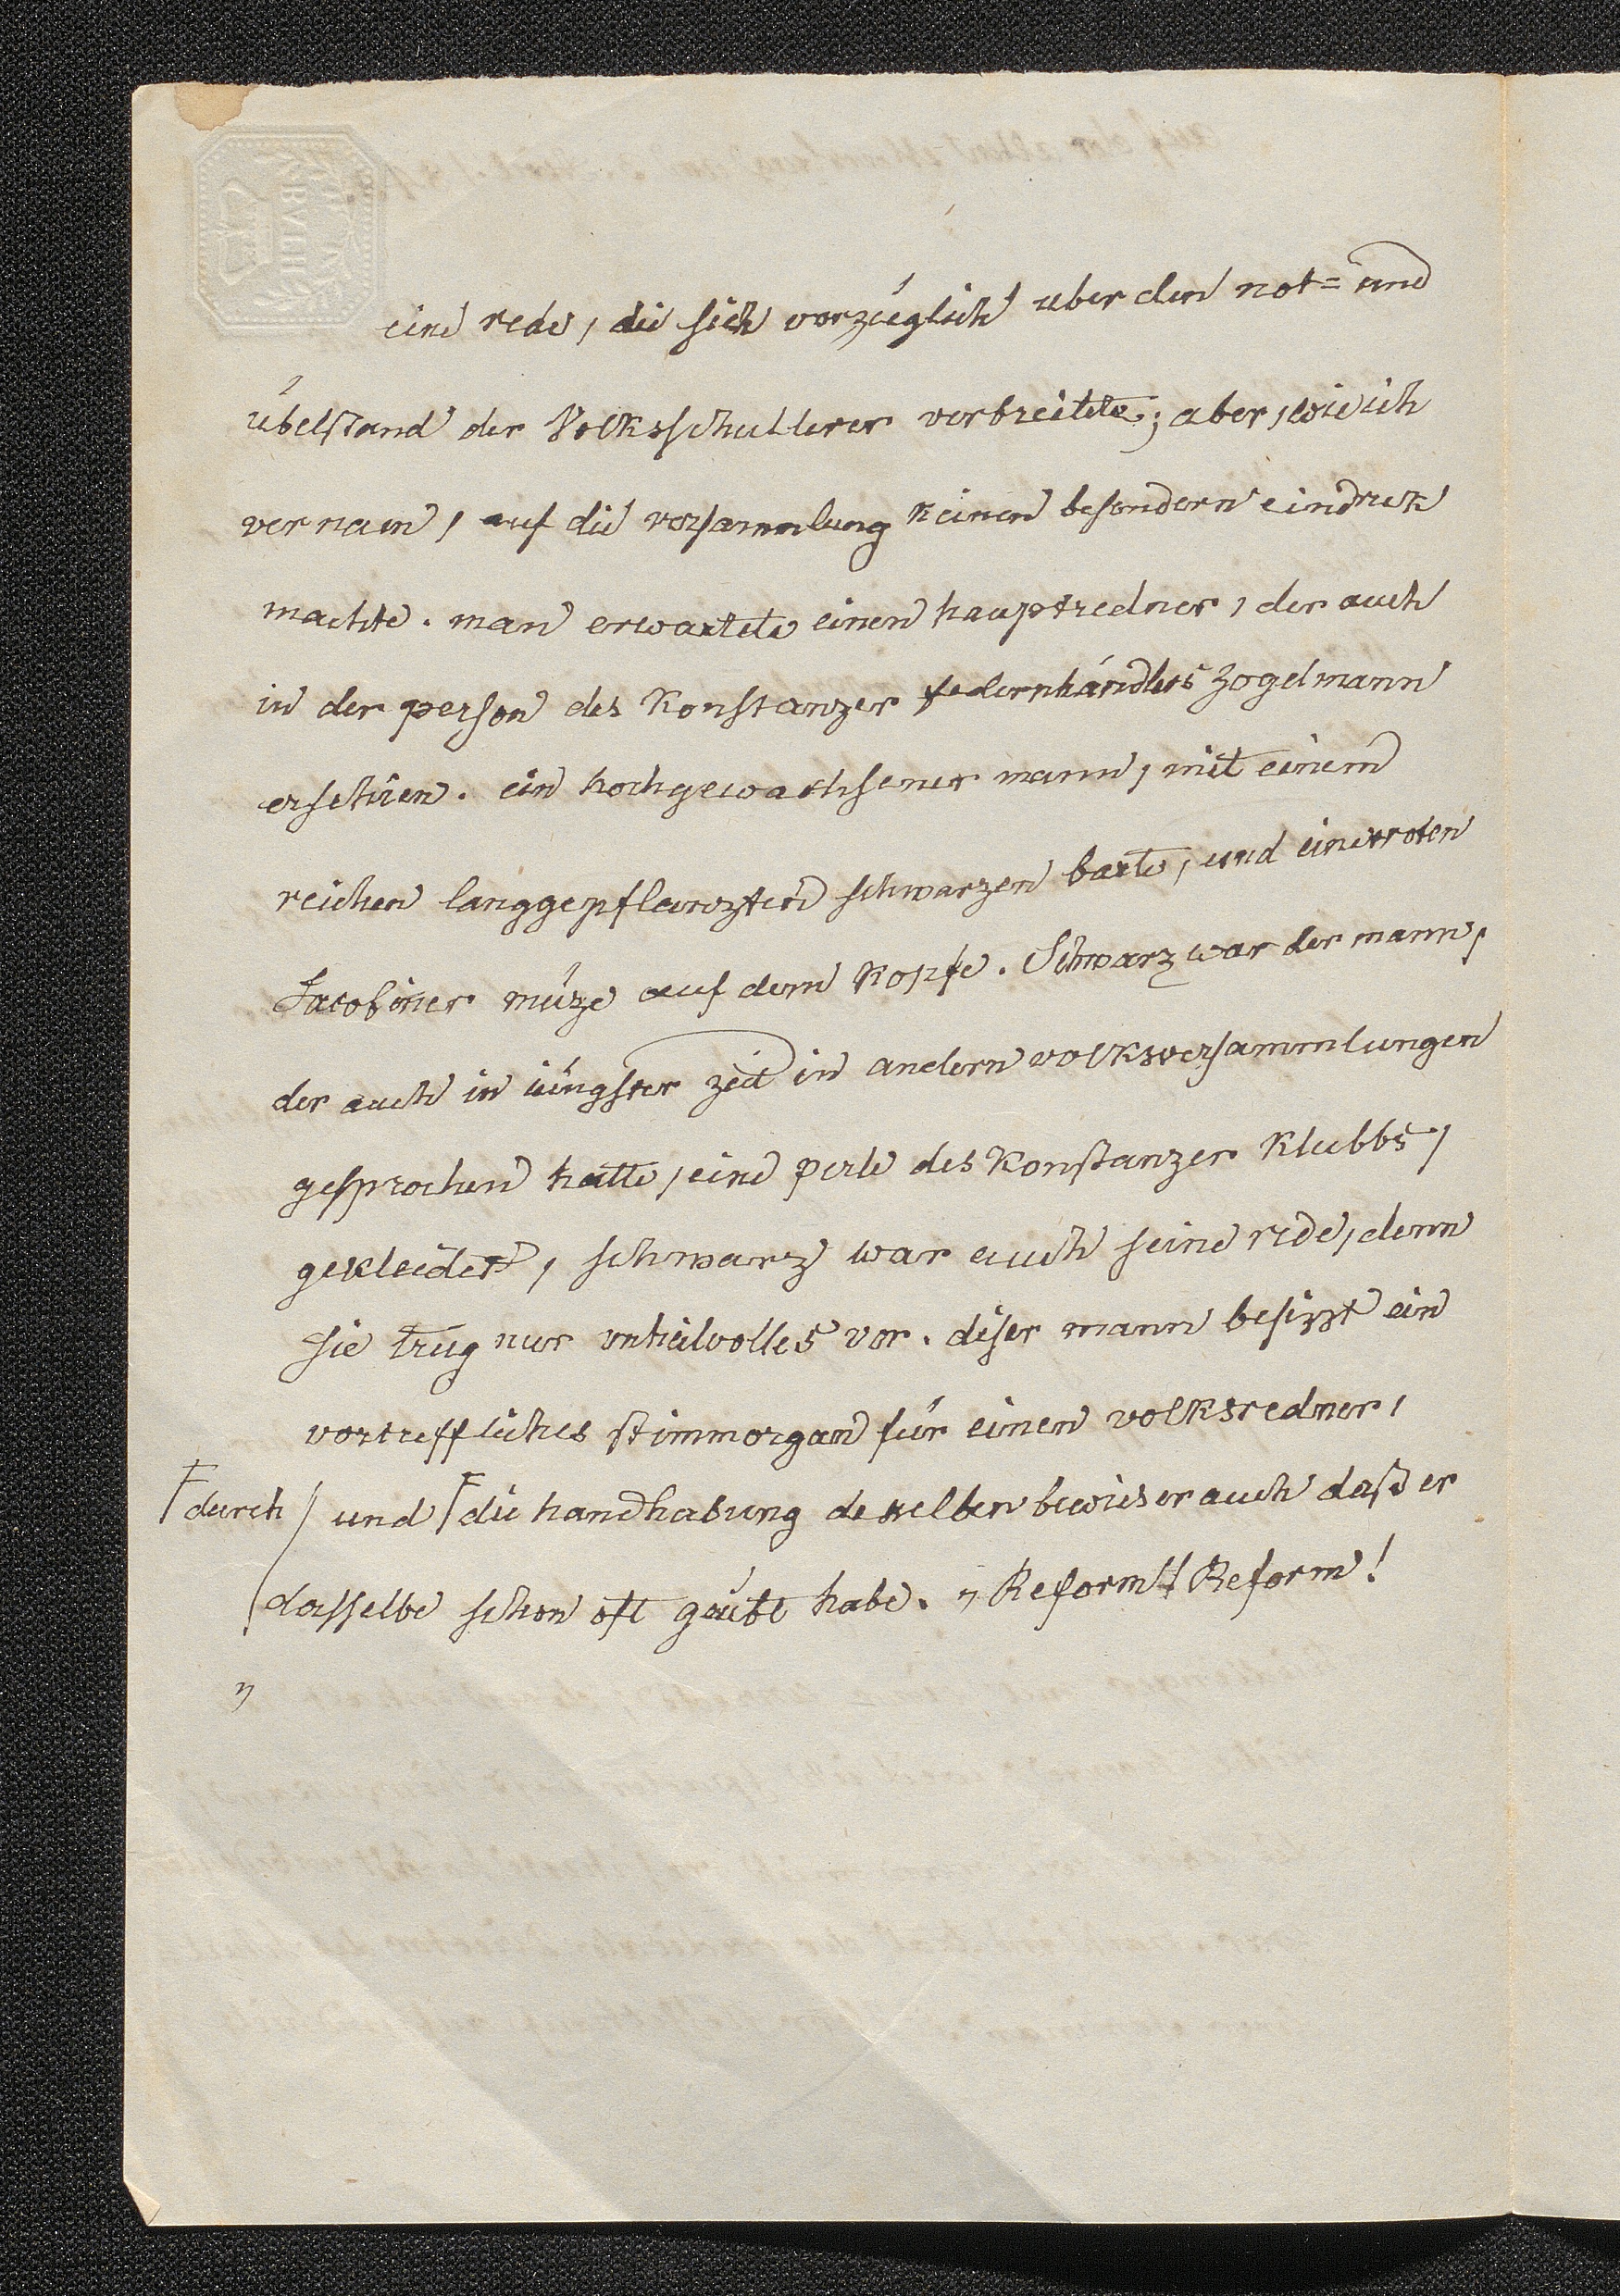 BATH
eine rede, die sich vorzüglich uber den not= und
übelstand der Volksschullerer verbreitete; aber, wie ich
vernam, auf die versammlung keinen besondern eindruk
machte. man erwartete einen hauptredner, der auch
in der person des Konstanzer federnhändlers Zogelmann
erschien. ein hochgewachsener mann, mit einem
reichen langgepflanzten schwarzen barte, und einer roten
Jacobiner müze auf dem Kopfe. Schwarz war der mann,
der auch in iüngster zeit in andern volksversammlungen
gesprochen hatte, eine perle des Konstanzer Klubbs,
gekleidet, schwarz war auch seine rede, denn
sie trug nur vnheilvolles vor. diser mann besizt ein
vortreffliches stimmorgan für einen volksredner,
durch
und die handhabung desselben bewies er auch daß er
dasselbe schon oft geübt habe. „Reform! Reform!
„